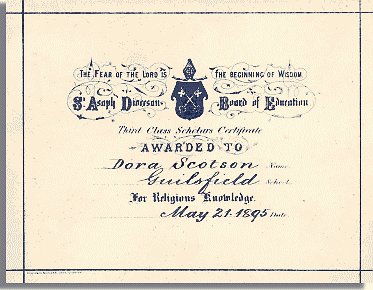 The Fear of the Lord is The Beginning of Wisdom
St Asaph Diocesan Board of Education
Third Class Scholars Certificate
AWARDED TO
Dora Scotson Name
Guilsfield School
For Religious Knowledge.
May 21. 1895 Date.